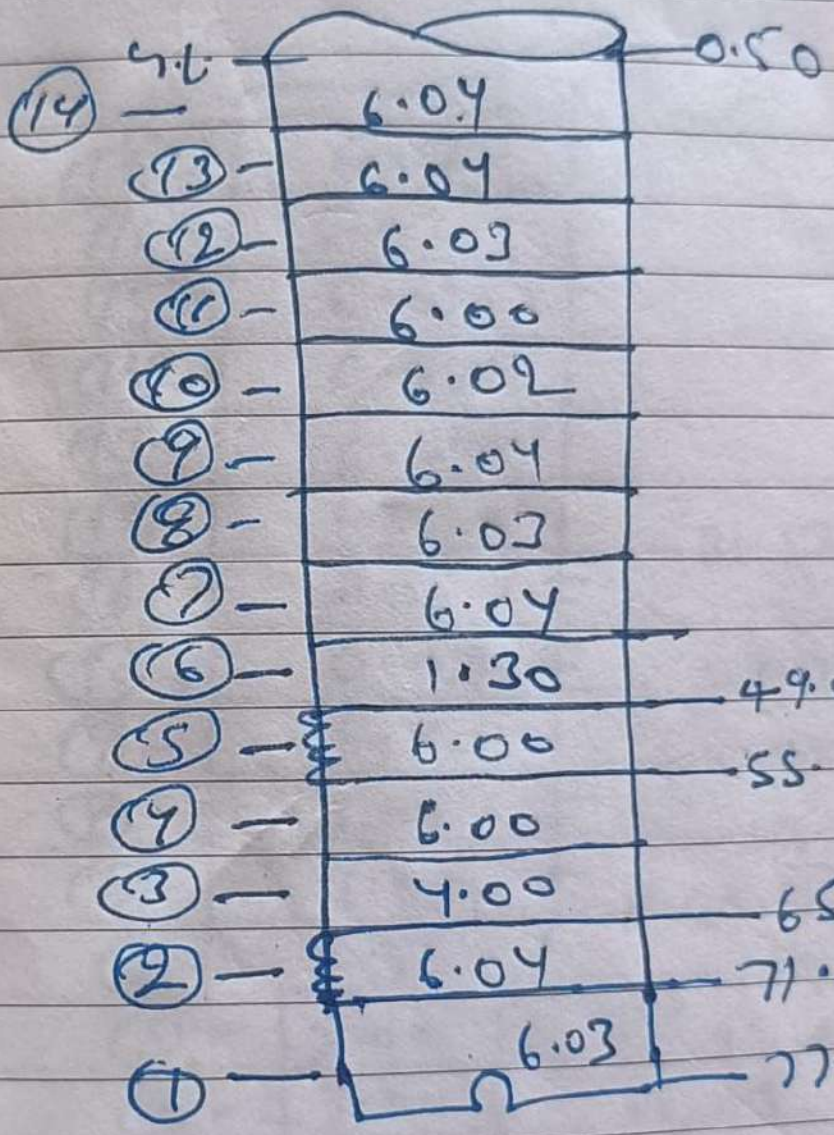 G.L 0.50
14 6.04
13 6.04
12 6.03
11 6.00
10 6.02
9 6.04
8 6.03
7 6.04
6 1.30
49.
5 6.00
55.
4 6.00
3 4.00
65
2 6.04
71.
1 6.03
77